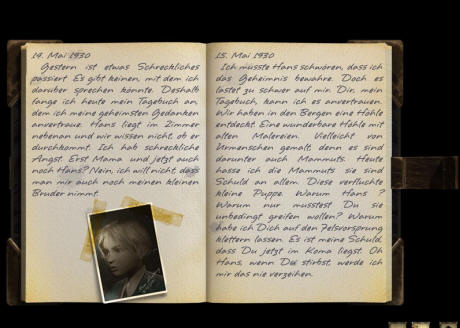 14. Mai 1930
Gestern ist etwas Schreckliches
passiert. Es gibt keinen, mit dem ich
darüber sprechen könnte. Deshalb
fange ich heute mein Tagebuch an,
dem ich meine geheimsten Gedanken
anvertraue. Hans liegt im Zimmer
nebenan und wir wissen nicht, ob er
durchkommt. Ich hab schreckliche
Angst. Erst Mama und jetzt auch
noch Hans? Nein, ich will nicht, dass
man mir auch noch meinen kleinen
Bruder nimmt.
15. Mai 1930
Ich musste Hans schwören, dass ich
das Geheimnis bewahre. Doch es
lastet zu schwer auf mir. Dir, mein
Tagebuch, kann ich es anvertrauen.
Wir haben in den Bergen eine Höhle
entdeckt. Eine wunderbare Höhle mit
alten Malereien. Vielleicht von
Urmenschen gemalt, denn es sind
darunter auch Mammuts. Heute
hasse ich die Mammuts sie sind
Schuld an allem. Diese verfluchte
kleine Puppe. Warum Hans?
Warum nur musstest Du sie
unbedingt greifen wollen? Warum
habe ich Dich auf den Felsvorsprung
klettern lassen. Es ist meine Schuld,
dass Du jetzt im Koma liegst. Oh
Hans, wenn Du stirbst, werde ich
mir das nie verzeihen.